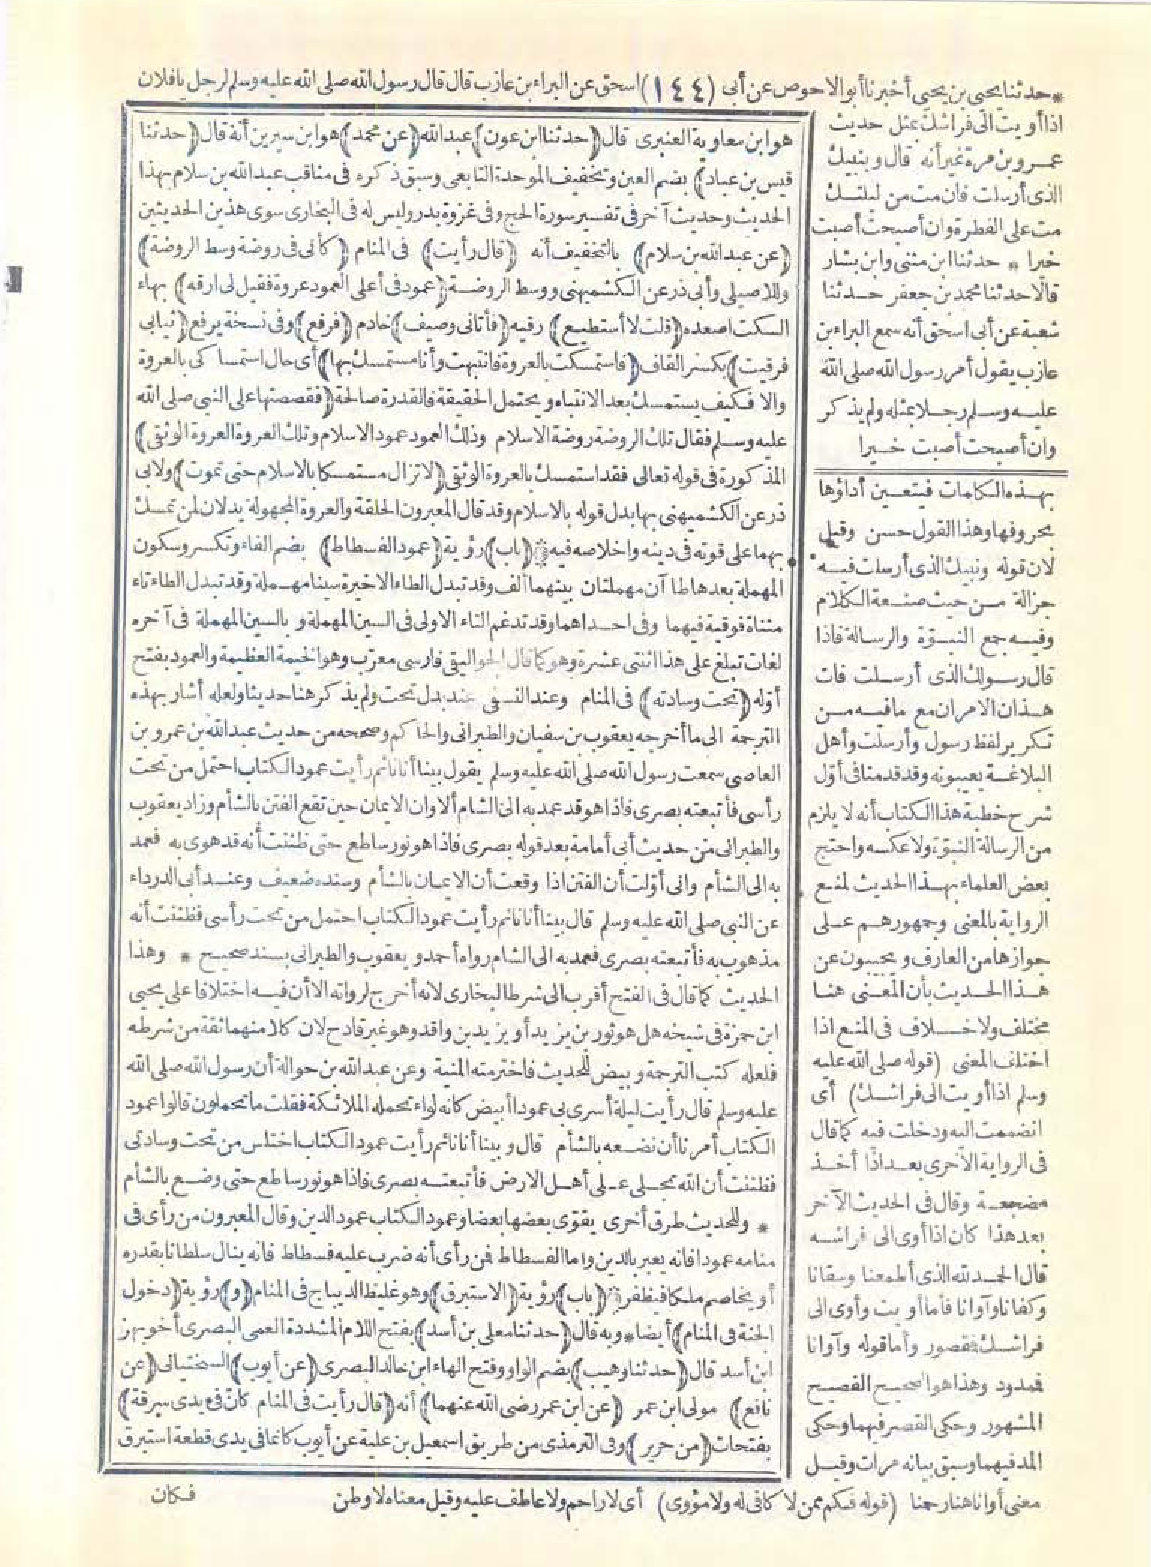 * حدثنا يحيى بن يحيى أخبرنا أبو الاحوص عن أبي (١٤٤) اسحق عن البراء بن عازب قال قال رسول الله صلى الله عليه وسلم لرجل يا فلان
اذا أويت الى فراشك بمثل حديث
عمرو بن مرة غير أنه قال وبنبيك
الذى أرسلت فان مت من ليلتك
مت على الفطرة وان أصبحت أصبت
خيرا * حدثنا ابن مثنى وابن بشار
قالا حدثنا محمد بن جعفر حدثنا
شعبة عن أبى اسحق أنه سمع البراء بن
عازب يقول أمر رسول الله صلى الله
عليه وسلم رجلا بمثله ولم يذكر
وان أصبحت أصبت خيرا
بهذه الكلمات فيتعين أداؤها
بحروفها وهذا القول حسن وقيل
لان قوله ونبيك الذى أرسلت فيه
جزالة من حيث صنعة الكلام
وفيه جمع النبوة والرسالة فاذا
قال رسولك الذى أرسلت فات
هذان الامران مع ما فيه من
تكرير لفظ رسول وأرسلت وأهل
البلاغة يعيبونه وقد قدمنا فى أول
شرح خطبة هذا الكتاب أنه لا يلزم
من الرسالة النبوة ولا عكسه واحتج
بعض العلماء بهذا الحديث لمنع
الرواية بالمعنى وجمهورهم على
جوازها من العارف ويجيبون عن
هذا الحديث بأن المعنى هنا
مختلف ولا خلاف فى المنع اذا
اختلف المعنى (قوله صلى الله عليه
وسلم اذا أويت الى فراشك) أى
انضممت اليه ودخلت فيه كما قال
فى الرواية الاخرى بعد اذا أخذ
مضجعه وقال فى الحديث الآخر
بعد هذا كان اذا أوى الى فراشه
قال الحمد لله الذى أطعمنا وسقانا
وكفانا وآوانا فأما أويت وأوى الى
فراشك فقصور وأما قوله وآوانا
فممدود وهذا هو الصحيح الفصيح
المشهور وحكى القصر فيهما وحكى
المد فيهما وسبق بيانه مرات وقيل
معنى أوانا هنا رحمنا (قوله فكم ممن لا كافى له ولا مؤوى) أى لا راحم ولا عاطف عليه وقيل معناه لا وطن
هو ابن معاوية العنبرى قال (حدثنا ابن عون) عبد الله (عن محمد) هو ابن سيرين أنه قال (حدثنا
قيس بن عباد) بضم العين وتخفيف الموحدة التابعى وسبق ذكره فى مناقب عبد الله بن سلام بهذا
الحديث وحديث آخر فى تفسير سورة الحج وفى غزوة بدر وليس له فى البخارى سوى هذين الحديثين
(عن عبد الله بن سلام) بالتخفيف أنه (قال رأيت) فى المنام (كأنى فى روضة وسط الروضة)
وللاصيلى وأبى ذر عن الكشميهنى ووسط الروضة (عمود فى أعلى العمود عروة فقيل لى ارقه) بهاء
السكت اصعده (قلت لا أستطيع) رقيه (فأتانى وصيف) خادم (فرفع) وفى نسخة يرفع (ثيابى
فرقيت) بكسر القاف (فاستمسكت بالعروة فانتبهت وأنا مستمسك بها) أى حال استمساكى بالعروة
والا فكيف يستمسك بعد الانتباه ويحتمل الحقيقة فالقدرة صالحة (فقصصتها على النبى صلى الله
عليه وسلم فقال تلك الروضة روضة الاسلام وذلك العمود عمود الاسلام وتلك العروة العروة الوثقى)
المذكورة فى قوله تعالى فقد استمسك بالعروة الوثقى (لا تزال مستمسكا بالاسلام حتى تموت) ولابى
ذر عن الكشميهنى بها بدل قوله بالاسلام وقد قال المعبرون الحلقة والعروة المجهولة يدلان لمن تمسك
بهما على قوته فى دينه واخلاصه فيه (باب) رؤية (عمود الفسطاط) بضم الفاء وتكسر وسكون
المهملة بعدها طاآن مهملتان بينهما ألف وقد تبدل الطاء الاخيرة سينا مهملة وقد تبدل الطاء تاء
مثناة فوقية فيهما وفى احداهما وقد تدغم التاء الاولى فى السين المهملة وبالسين المهملة فى آخره
لغات تبلغ على هذا اثنتى عشرة وهو كما قال الجواليقى فارسى معرب وهو الخيمة العظيمة والعمود بفتح
أوله (تحت وسادته) فى المنام وعند النسفى عند بدل تحت ولم يذكر هنا حديثا ولعله أشار بهذه
الترجمة الى ما أخرجه يعقوب بن سفيان والطبرانى والحاكم وصححه من حديث عبد الله بن عمرو بن
العاصى سمعت رسول الله صلى الله عليه وسلم يقول بينا أنا نائم رأيت عمود الكتاب احتمل من تحت
رأسى فأتبعته بصرى فاذا هو قد عمد به الى الشام ألا وان الايمان حين تقع الفتن بالشأم وزاد يعقوب
والطبرانى من حديث أبى أمامة بعد قوله بصرى فاذا هو نور ساطع حتى ظننت أنه قد هوى به فعمد
به الى الشأم وانى أولت أن الفتن اذا وقعت أن الايمان بالشأم وسنده ضعيف وعند أبى الدرداء
عن النبى صلى الله عليه وسلم قال بينا أنا نائم رأيت عمود الكتاب احتمل من تحت رأسى فظننت أنه
مذهوب به فأتبعته بصرى فعمد به الى الشام رواه أحمد ويعقوب والطبرانى بسند صحيح * وهذا
الحديث كما قال فى الفتح أقرب الى شرط البخارى لانه أخرج لرواته الا أن فيه اختلافا على يحيى
ابن حمزة فى شيخه هل هو ثور بن يزيد أو يزيد بن واقد وهو غير قادح لان كلا منهما ثقة من شرطه
فلعله كتب الترجمة وبيض للحديث فاخترمته المنية وعن عبد الله بن حوالة أن رسول الله صلى الله
عليه وسلم قال رأيت ليلة أسرى بى عمودا أبيض كأنه لواء تحمله الملائكة فقلت ما تحملون قالوا عمود
الكتاب أمرنا أن نضعه بالشأم قال وبينا أنا نائم رأيت عمود الكتاب اختلس من تحت وسادتى
فظننت أن الله تجلى على أهل الارض فأتبعته بصرى فاذا هو نور ساطع حتى وضع بالشأم
* وللحديث طرق أخرى يقوى بعضها بعضا وعمود الكتاب عمود الدين وقال المعبرون من رأى فى
منامه عمودا فانه يعبر بالدين وأما الفسطاط فمن رأى أنه ضرب عليه فسطاط فانه ينال سلطانا بقدره
أو يخاصم ملكا فيظفر به (باب) رؤية (الاستبرق) وهو غليظ الديباج فى المنام (و) رؤية (دخول
الجنة فى المنام) أيضا * وبه قال (حدثنا معلى بن أسد) بفتح اللام المشددة العمى البصرى أخو بهز
ابن أسد قال (حدثنا وهيب) بضم الواو وفتح الهاء ابن خالد البصرى (عن أيوب) السختيانى (عن
نافع) مولى ابن عمر (عن ابن عمر رضى الله عنهما) أنه (قال رأيت فى المنام كأن فى يدى سرقة)
بفتحات (من حرير) وفى الترمذى من طريق اسمعيل بن علية عن أيوب كأنما فى يدى قطعة استبرق
فكان